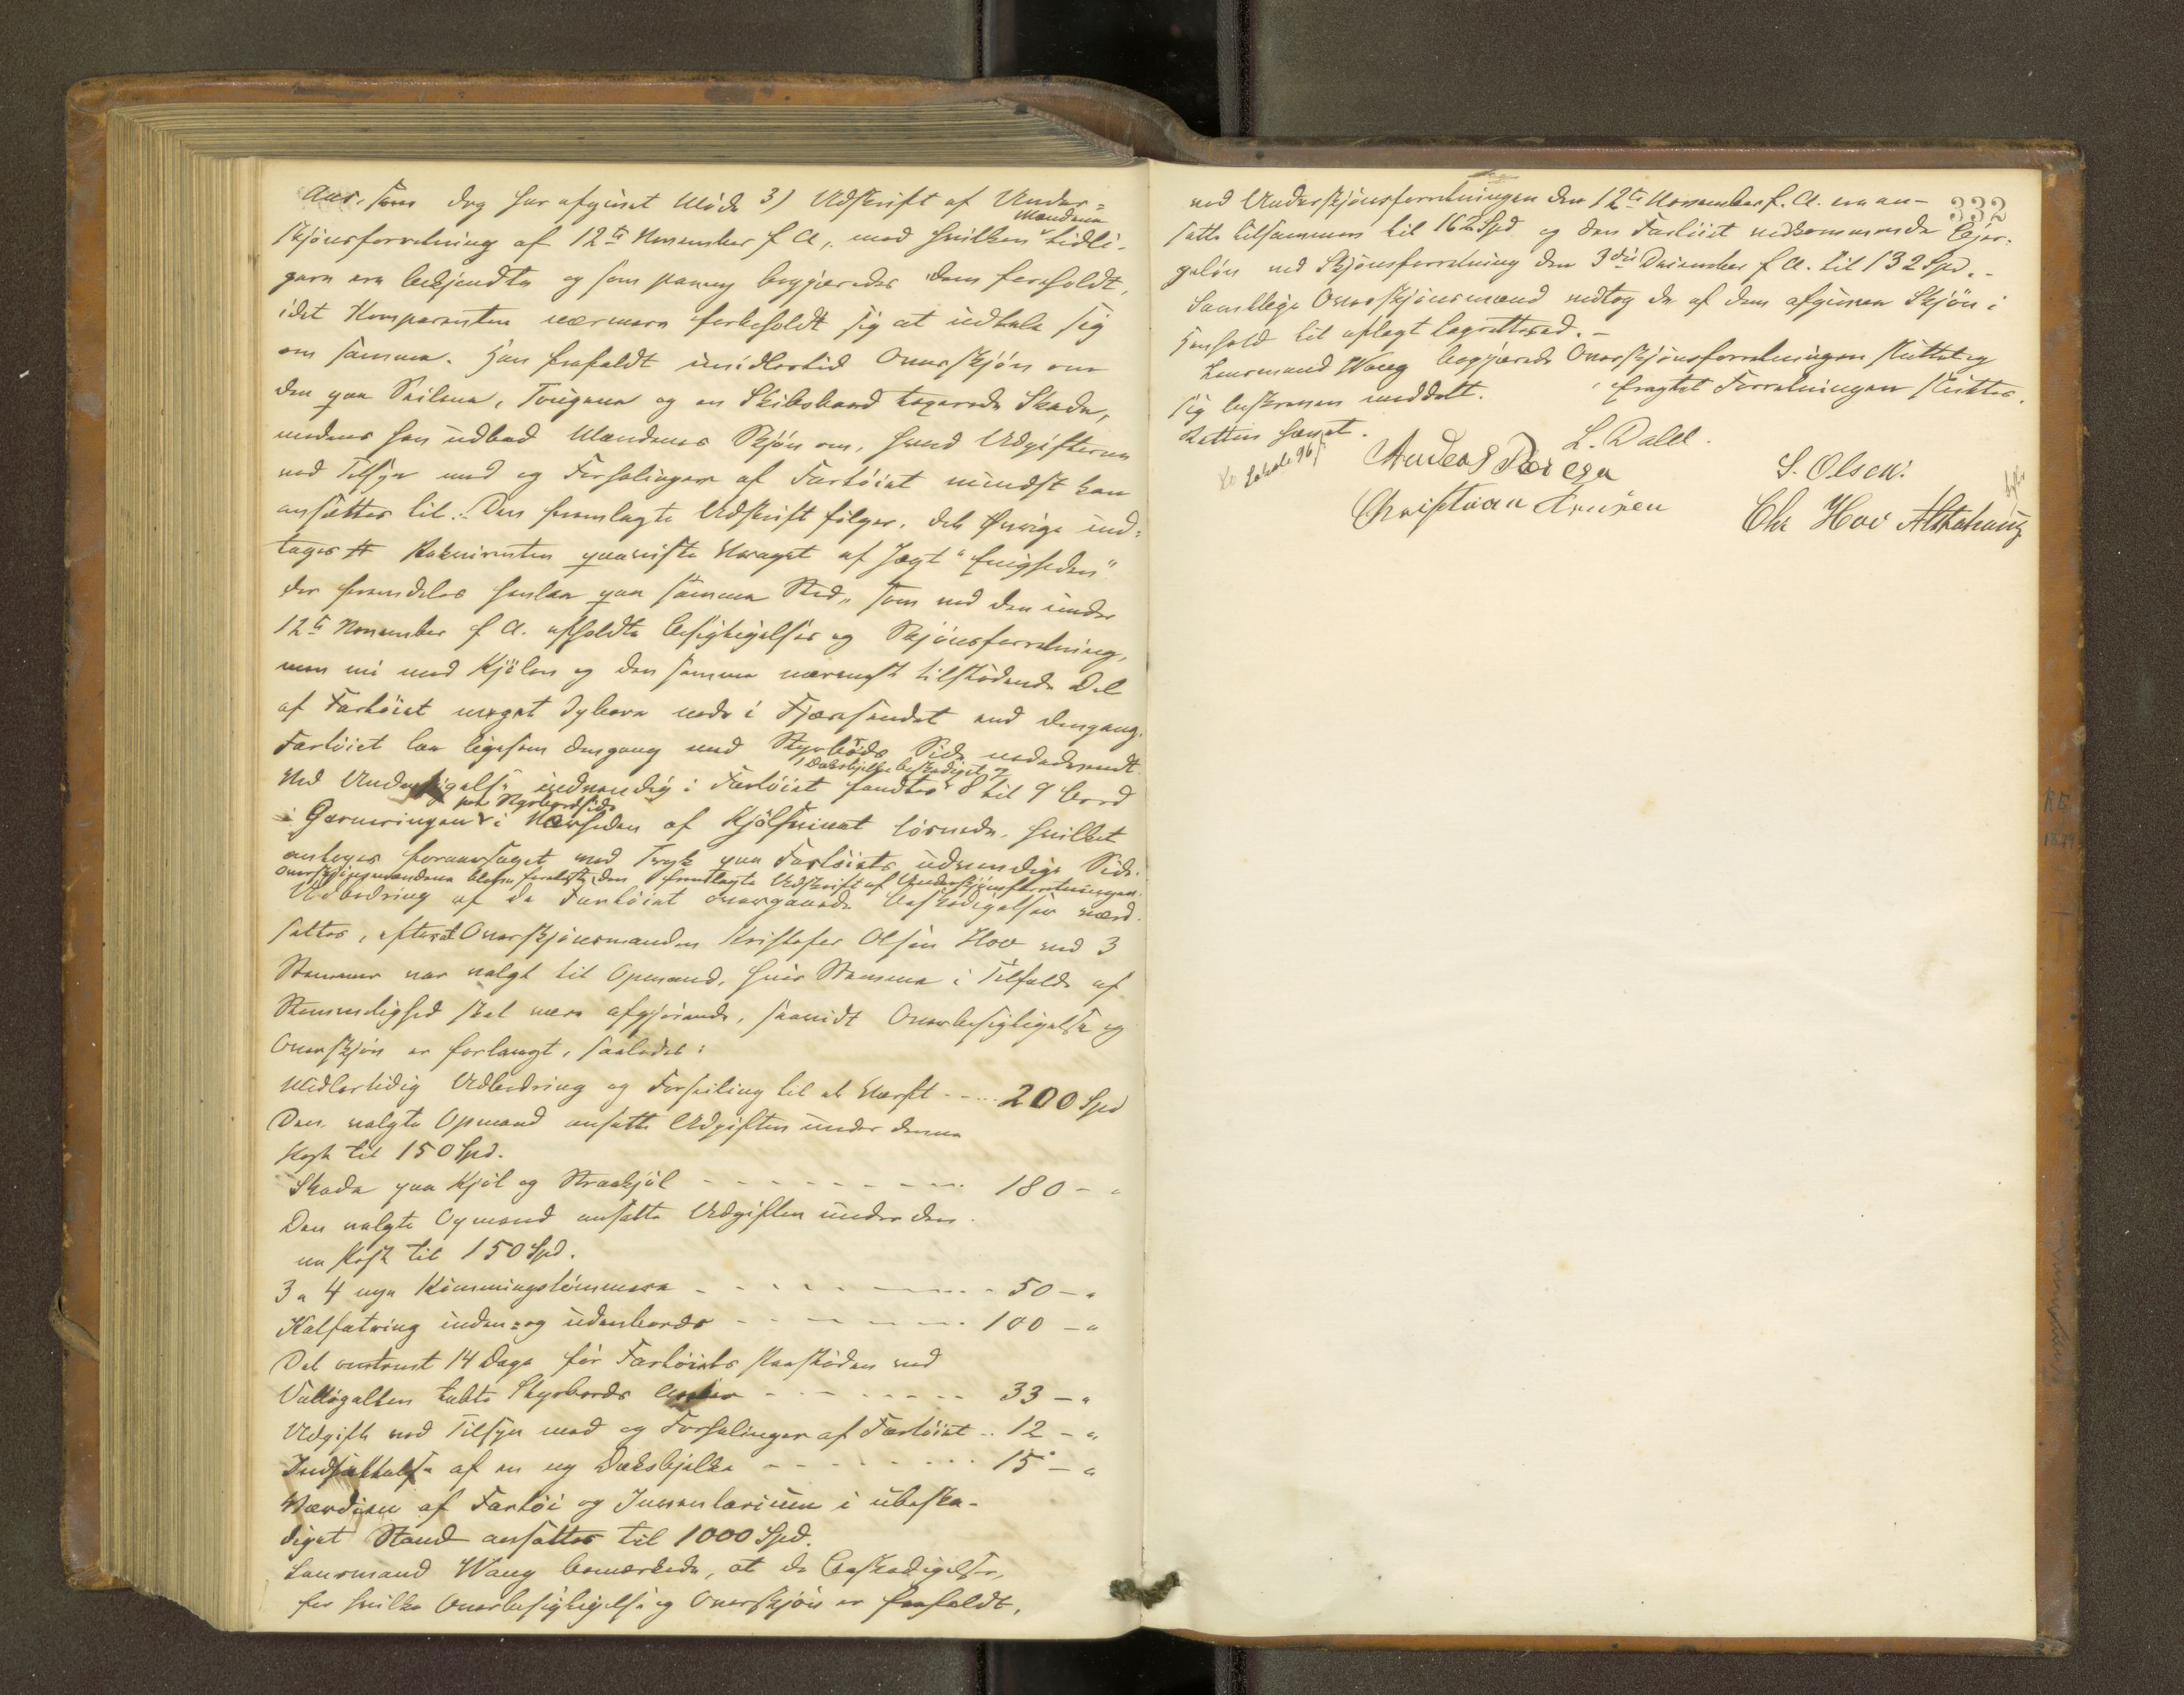 Aas, som dog har afgivet Møde 3) Udskrift af Under=
skjönsforretning af 12te November f A, med hvilken Mændene tidli-
gere ere bekjendte og som paany begjæredes dem foreholdt,
idet Komparenten nærmere forbeholdt sig at udtale sig
om samme. Han frafaldt imidlertid Overskjön over
den paa Seilene, Tougene og en Skibsbaad taxerede Skade,
medens han udbad Mændenes Skjön om, hvad Udgifterne
ved Tilsyn med og Forhalinger af Fartöiet mindst kan
ansættes til. Den fremlagte Udskrift fölger, dets Övrige ind-
tages # Rekvirenten paaviste Vraget af Jagt "Enigheden"
der fremdeles henlaa paa samme Sted, som ved den under
12te November f A. afholdte Besigtigelses og Skjönsforretning,
men nu med Kjölen og den samme nærmest tilstödende Del
af Fartöiet meget dybere nede i Fjæresandet end dengang.
Fartöiet laa ligesom dengang med Styrbords Side nedadvendt.
1 Dæksbjelke beskadiget og
Ved Undersögelse indvendig i Fartöiet fandtes 8 til 9 Bord
paa Styrbordside
i Garneringen i Nærheden af Kjölsvinet lösnede, hvilket
antoges foraarsaget ved Tryk paa Fartöiets udvendige Side.
Overskjönsmændene blev forelæst den fremlagte Udskrift af Underskjönsforretningen.
Udbedring af de Fartöiet overgaaede Beskadigelser værd-
sattes, efterat Overskjönsmanden Kristofer Olsen Hov med 3
Stemmer var valgt til Opmand, hvis Stemme i Tilfælde af
Stemmelighed skal være afgjörende, saavidt Overbesigtigelse og
Overskjön er forlangt, saaledes:
Midlertidig Udbedring og Forseiling til et Værft - - ... 200 Spd
Den valgte Opmand ansatte Udgiften under denne
Post til 150 Spd.
Skade paa Kjöl og Straakjöl - - - - - - - - - 180 - "
Den valgte Opmand ansatte Udgiften under den-
ne Post til 150 Spd.
3 a 4 nye Kimmingstömmere - - - - - - - 50 - "
Kalfatring inden= og udenbords - - - - - - - 100 - "
Det omtrent 14 Dage för Fartöiets Paastöden ved
tabte Styrbords Anker - - - - - - - - 33 - "
Udgift ved Tilsyn med og Forhalinger af Fartöiet .. 12 - "
Indsættelse af en ny Dæksbjelke - - - - - - - 15 - "
Værdien af Fartöi og Inventarium i ubeska-
diget Stand ansattes til 1000 Spd.
Lensmand Wang bemærkede, at de Beskadigelser,
for hvilke Overbesigtigelse og Overskjön er frafaldt,
332
ved Underskjönsforretningen den 12te November f. A. ere an-
satte tilsammen til 162 Spd og den Fartöiet vedkommende Bjer-
gelön ved Skjönsforretning den 3die December f A. til 132 Spd. -
Samtlige Overskjönsmænd vedtog de af dem afgivne Skjön i
Henhold til aflagt Lagretteed. -
Lensmand Wang begjærede Overskjönsforretningen sluttet og
sig beskreven meddelt. Forretningen sluttes.
Retten hævet.
L. Dahl.
S. Olsen.
Christian
Chr Hov